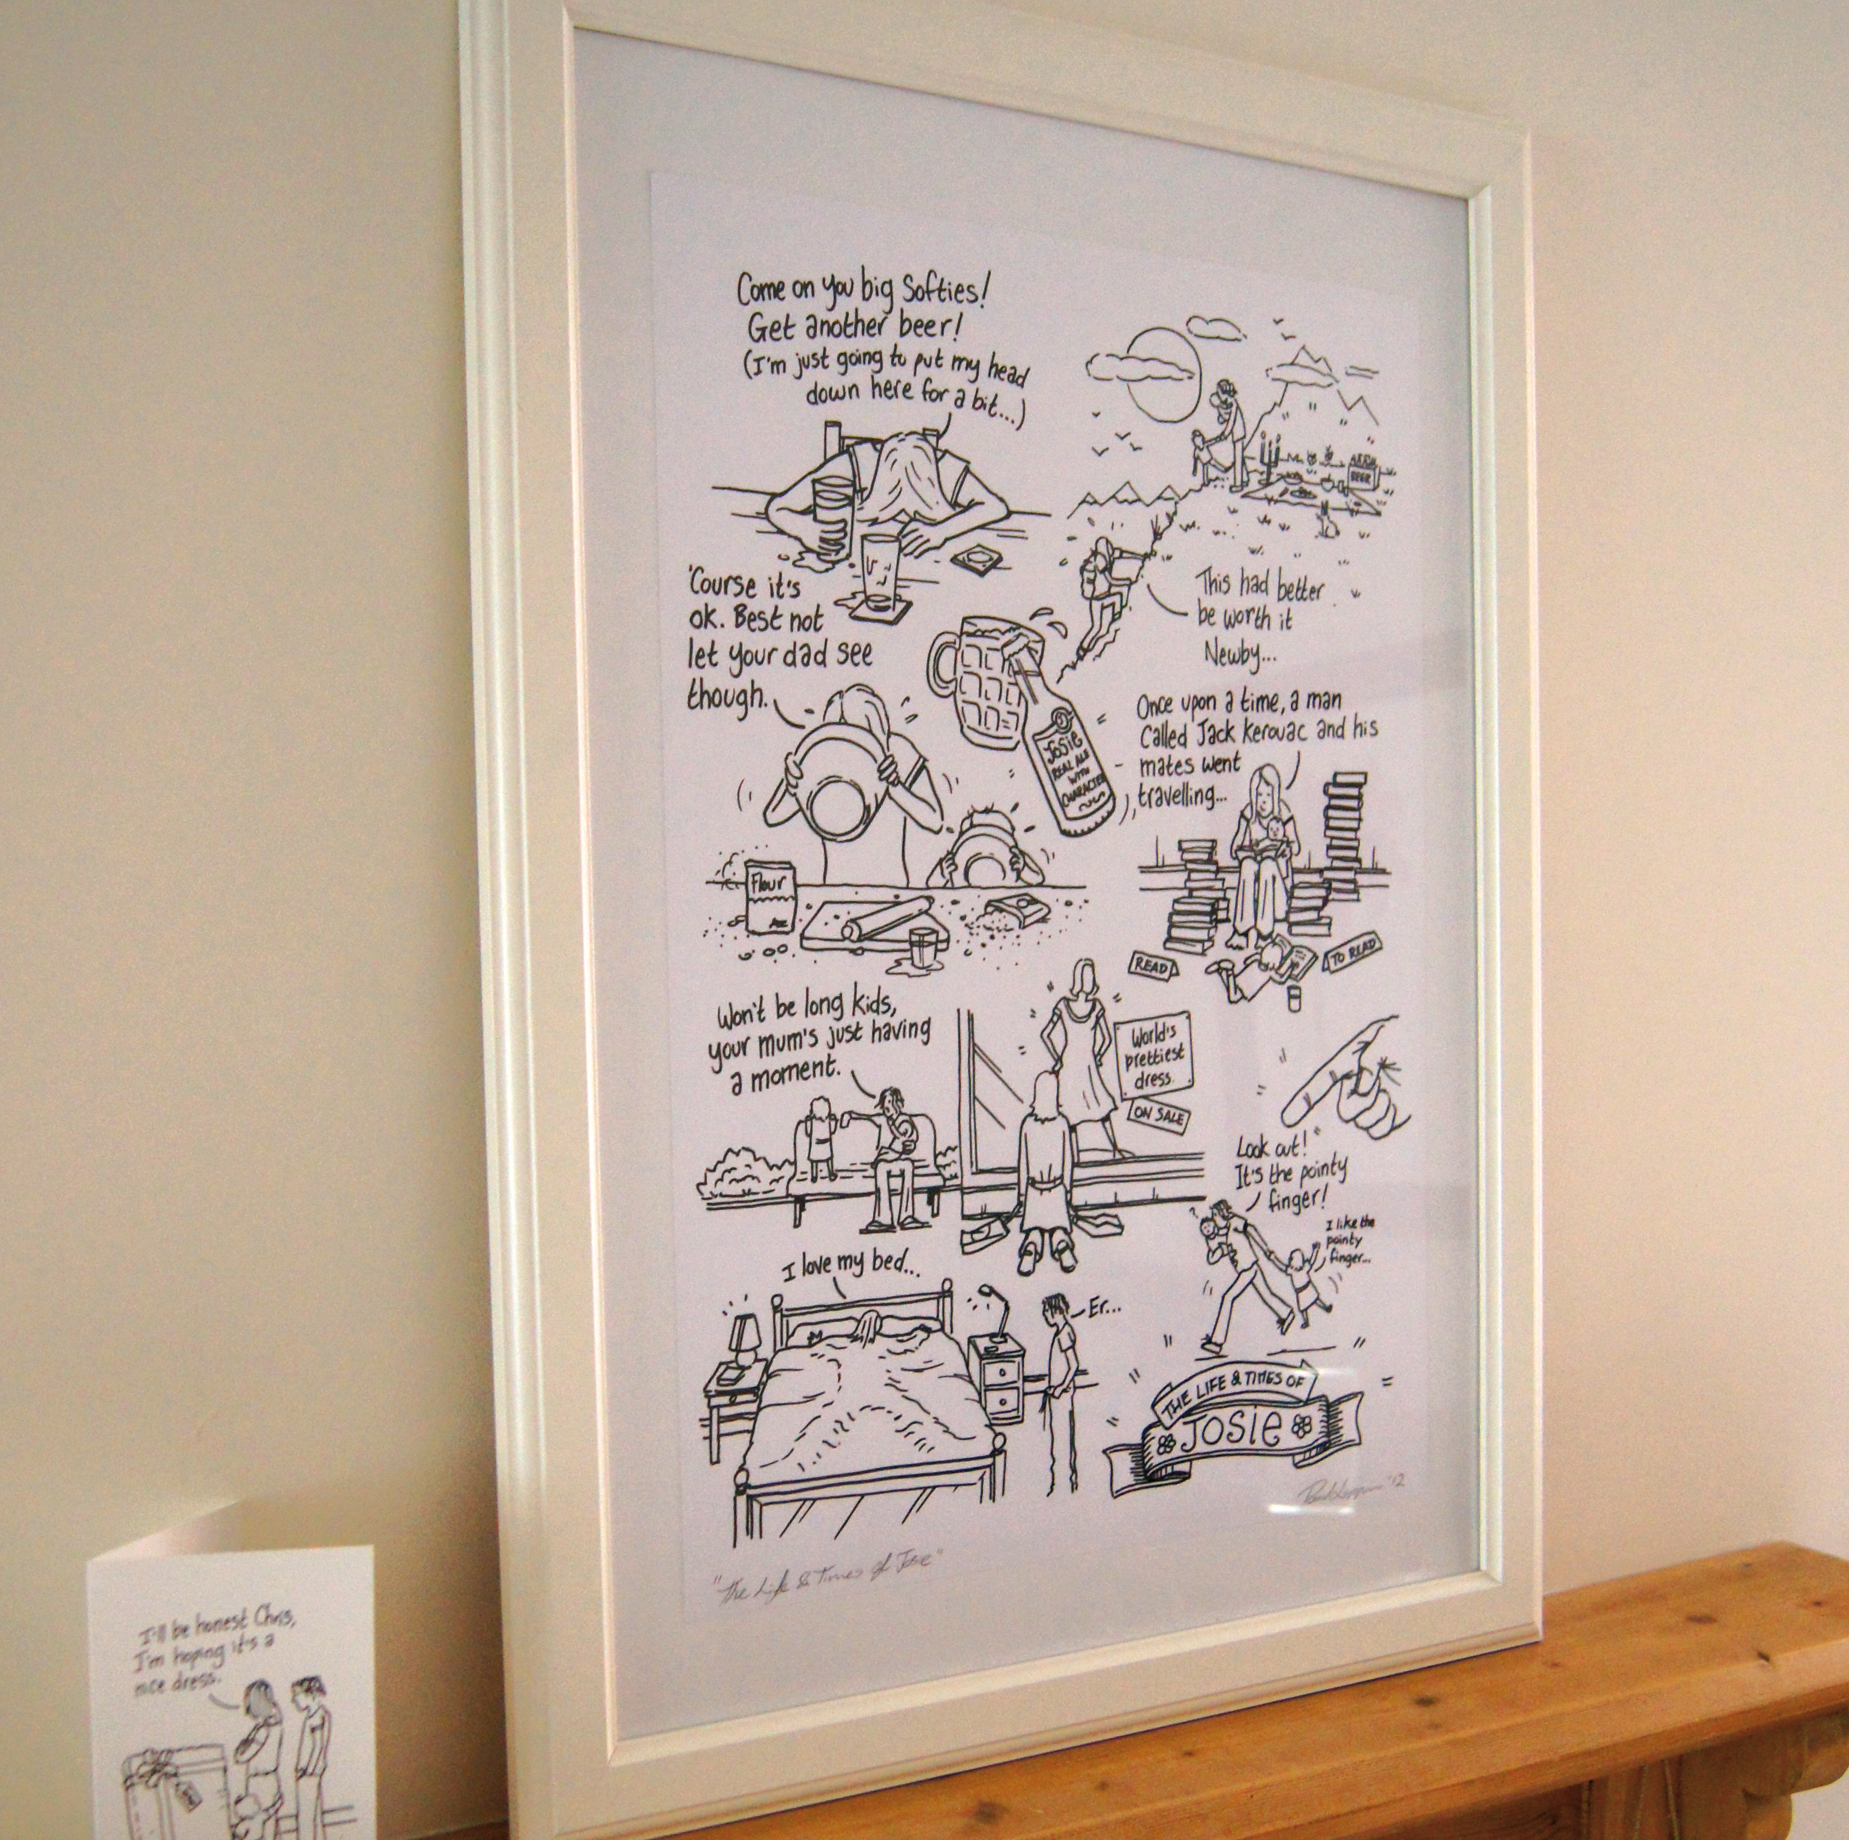 Come on you big Softies!
Get another beer!
(I'm just going to put my head
down here for a bit...)
BEER
This had better
be worth it
Newby...
'Course it's
ok. Best not
let your dad see
though.
Josie
REAL ALE
WITH
CHARACTER
Once upon a time, a man
called Jack Kerouac and his
mates went
travelling...
Flour
READ
TO READ
Won't be long kids,
your mum's just having
a moment.
World's
prettiest
dress
ON SALE
Look out!
It's the pointy
finger!
I like the
pointy
finger...
I love my bed...
Er...
THE LIFE & TIMES OF
JOSIE
'12
"The Life & Times of Josie"
I'll be honest Chris,
I'm hoping it's a
nice dress.